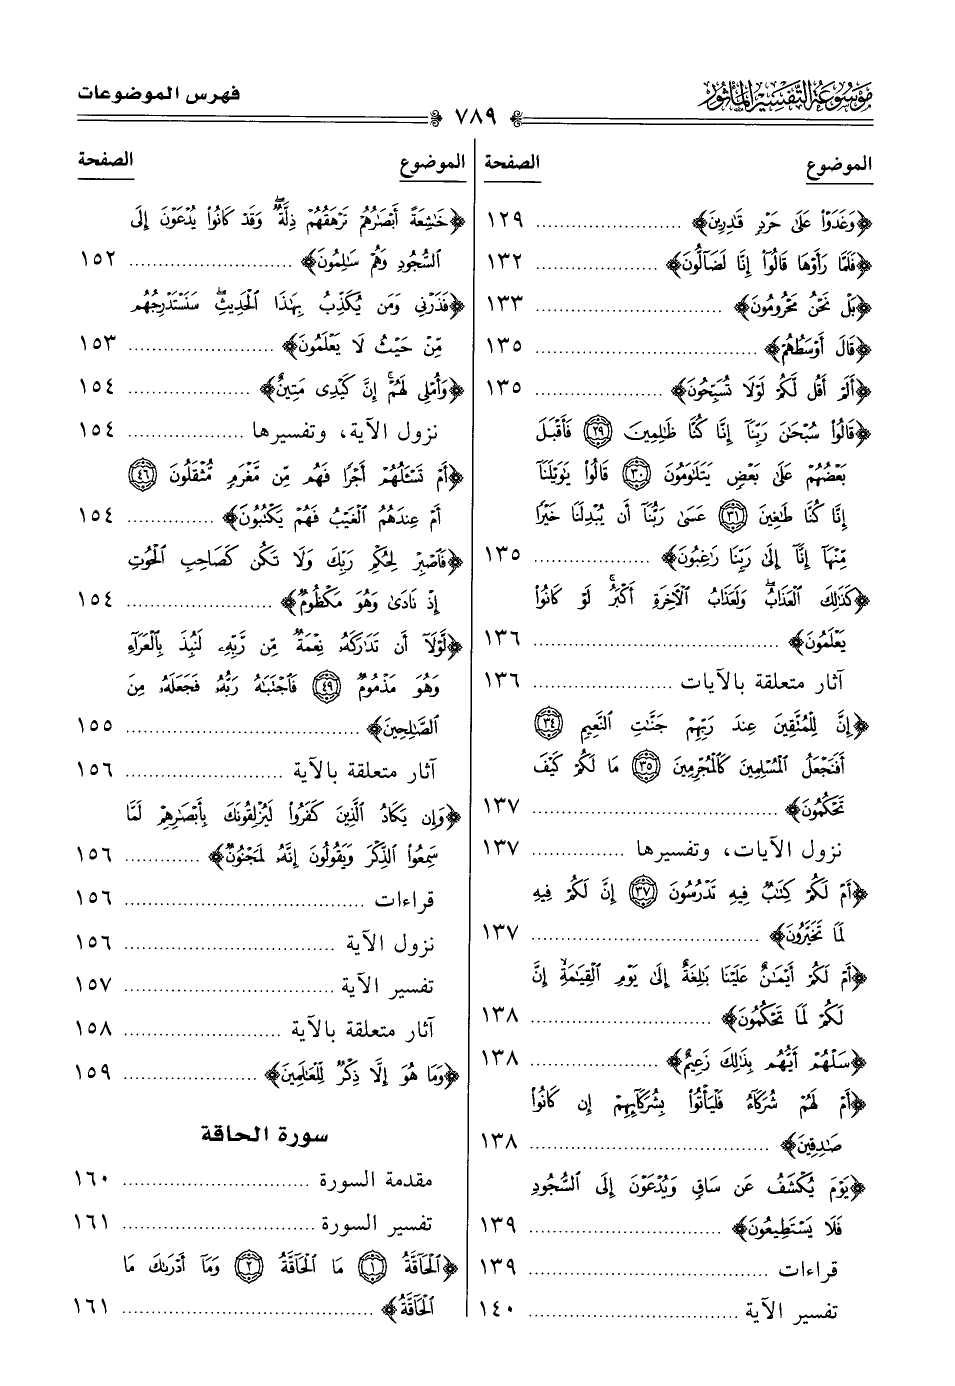 موسوعة التفسير المأثور
فهرس الموضوعات
٧٨٩
الموضوع الصفحة
﴿وَغَدَوْا عَلَىٰ حَرْدٍ قَادِرِينَ﴾ ........ ١٢٩
﴿فَلَمَّا رَأَوْهَا قَالُوا إِنَّا لَضَالُّونَ﴾ ........ ١٣٢
﴿بَلْ نَحْنُ مَحْرُومُونَ﴾ ........ ١٣٣
﴿قَالَ أَوْسَطُهُمْ﴾ ........ ١٣٥
﴿أَلَمْ أَقُل لَّكُمْ لَوْلَا تُسَبِّحُونَ﴾ ........ ١٣٥
﴿قَالُوا سُبْحَٰنَ رَبِّنَا إِنَّا كُنَّا ظَٰلِمِينَ ٢٩ فَأَقْبَلَ
بَعْضُهُمْ عَلَىٰ بَعْضٍ يَتَلَٰوَمُونَ ٣٠ قَالُوا يَٰوَيْلَنَا
إِنَّا كُنَّا طَٰغِينَ ٣١ عَسَىٰ رَبُّنَا أَن يُبْدِلَنَا خَيْرًا
مِّنْهَا إِنَّا إِلَىٰ رَبِّنَا رَٰغِبُونَ﴾ ........ ١٣٥
﴿كَذَٰلِكَ الْعَذَابُ وَلَعَذَابُ الْآخِرَةِ أَكْبَرُ لَوْ كَانُوا
يَعْلَمُونَ﴾ ........ ١٣٦
آثار متعلقة بالآيات ........ ١٣٦
﴿إِنَّ لِلْمُتَّقِينَ عِندَ رَبِّهِمْ جَنَّٰتِ النَّعِيمِ ٣٤
أَفَنَجْعَلُ الْمُسْلِمِينَ كَالْمُجْرِمِينَ ٣٥ مَا لَكُمْ كَيْفَ
تَحْكُمُونَ﴾ ........ ١٣٧
نزول الآيات، وتفسيرها ........ ١٣٧
﴿أَمْ لَكُمْ كِتَٰبٌ فِيهِ تَدْرُسُونَ ٣٧ إِنَّ لَكُمْ فِيهِ
لَمَا تَخَيَّرُونَ﴾ ........ ١٣٧
﴿أَمْ لَكُمْ أَيْمَٰنٌ عَلَيْنَا بَٰلِغَةٌ إِلَىٰ يَوْمِ الْقِيَٰمَةِ إِنَّ
لَكُمْ لَمَا تَحْكُمُونَ﴾ ........ ١٣٨
﴿سَلْهُمْ أَيُّهُم بِذَٰلِكَ زَعِيمٌ﴾ ........ ١٣٨
﴿أَمْ لَهُمْ شُرَكَاءُ فَلْيَأْتُوا بِشُرَكَائِهِمْ إِن كَانُوا
صَٰدِقِينَ﴾ ........ ١٣٨
﴿يَوْمَ يُكْشَفُ عَن سَاقٍ وَيُدْعَوْنَ إِلَى السُّجُودِ
فَلَا يَسْتَطِيعُونَ﴾ ........ ١٣٩
قراءات ........ ١٣٩
تفسير الآية ........ ١٤٠
الموضوع الصفحة
﴿خَٰشِعَةً أَبْصَٰرُهُمْ تَرْهَقُهُمْ ذِلَّةٌ وَقَدْ كَانُوا يُدْعَوْنَ إِلَى
السُّجُودِ وَهُمْ سَٰلِمُونَ﴾ ........ ١٥٢
﴿فَذَرْنِي وَمَن يُكَذِّبُ بِهَٰذَا الْحَدِيثِ سَنَسْتَدْرِجُهُم
مِّنْ حَيْثُ لَا يَعْلَمُونَ﴾ ........ ١٥٣
﴿وَأُمْلِي لَهُمْ إِنَّ كَيْدِي مَتِينٌ﴾ ........ ١٥٤
نزول الآية، وتفسيرها ........ ١٥٤
﴿أَمْ تَسْـَٔلُهُمْ أَجْرًا فَهُم مِّن مَّغْرَمٍ مُّثْقَلُونَ ٤٦
أَمْ عِندَهُمُ الْغَيْبُ فَهُمْ يَكْتُبُونَ﴾ ........ ١٥٤
﴿فَاصْبِرْ لِحُكْمِ رَبِّكَ وَلَا تَكُن كَصَاحِبِ الْحُوتِ
إِذْ نَادَىٰ وَهُوَ مَكْظُومٌ﴾ ........ ١٥٤
﴿لَّوْلَا أَن تَدَٰرَكَهُ نِعْمَةٌ مِّن رَّبِّهِ لَنُبِذَ بِالْعَرَاءِ
وَهُوَ مَذْمُومٌ ٤٩ فَاجْتَبَٰهُ رَبُّهُ فَجَعَلَهُ مِنَ
الصَّٰلِحِينَ﴾ ........ ١٥٥
آثار متعلقة بالآية ........ ١٥٦
﴿وَإِن يَكَادُ الَّذِينَ كَفَرُوا لَيُزْلِقُونَكَ بِأَبْصَٰرِهِمْ لَمَّا
سَمِعُوا الذِّكْرَ وَيَقُولُونَ إِنَّهُ لَمَجْنُونٌ﴾ ........ ١٥٦
قراءات ........ ١٥٦
نزول الآية ........ ١٥٦
تفسير الآية ........ ١٥٧
آثار متعلقة بالآية ........ ١٥٨
﴿وَمَا هُوَ إِلَّا ذِكْرٌ لِّلْعَٰلَمِينَ﴾ ........ ١٥٩
سورة الحاقة
مقدمة السورة ........ ١٦٠
تفسير السورة ........ ١٦١
﴿الْحَاقَّةُ ١ مَا الْحَاقَّةُ ٢ وَمَا أَدْرَىٰكَ مَا
الْحَاقَّةُ﴾ ........ ١٦١